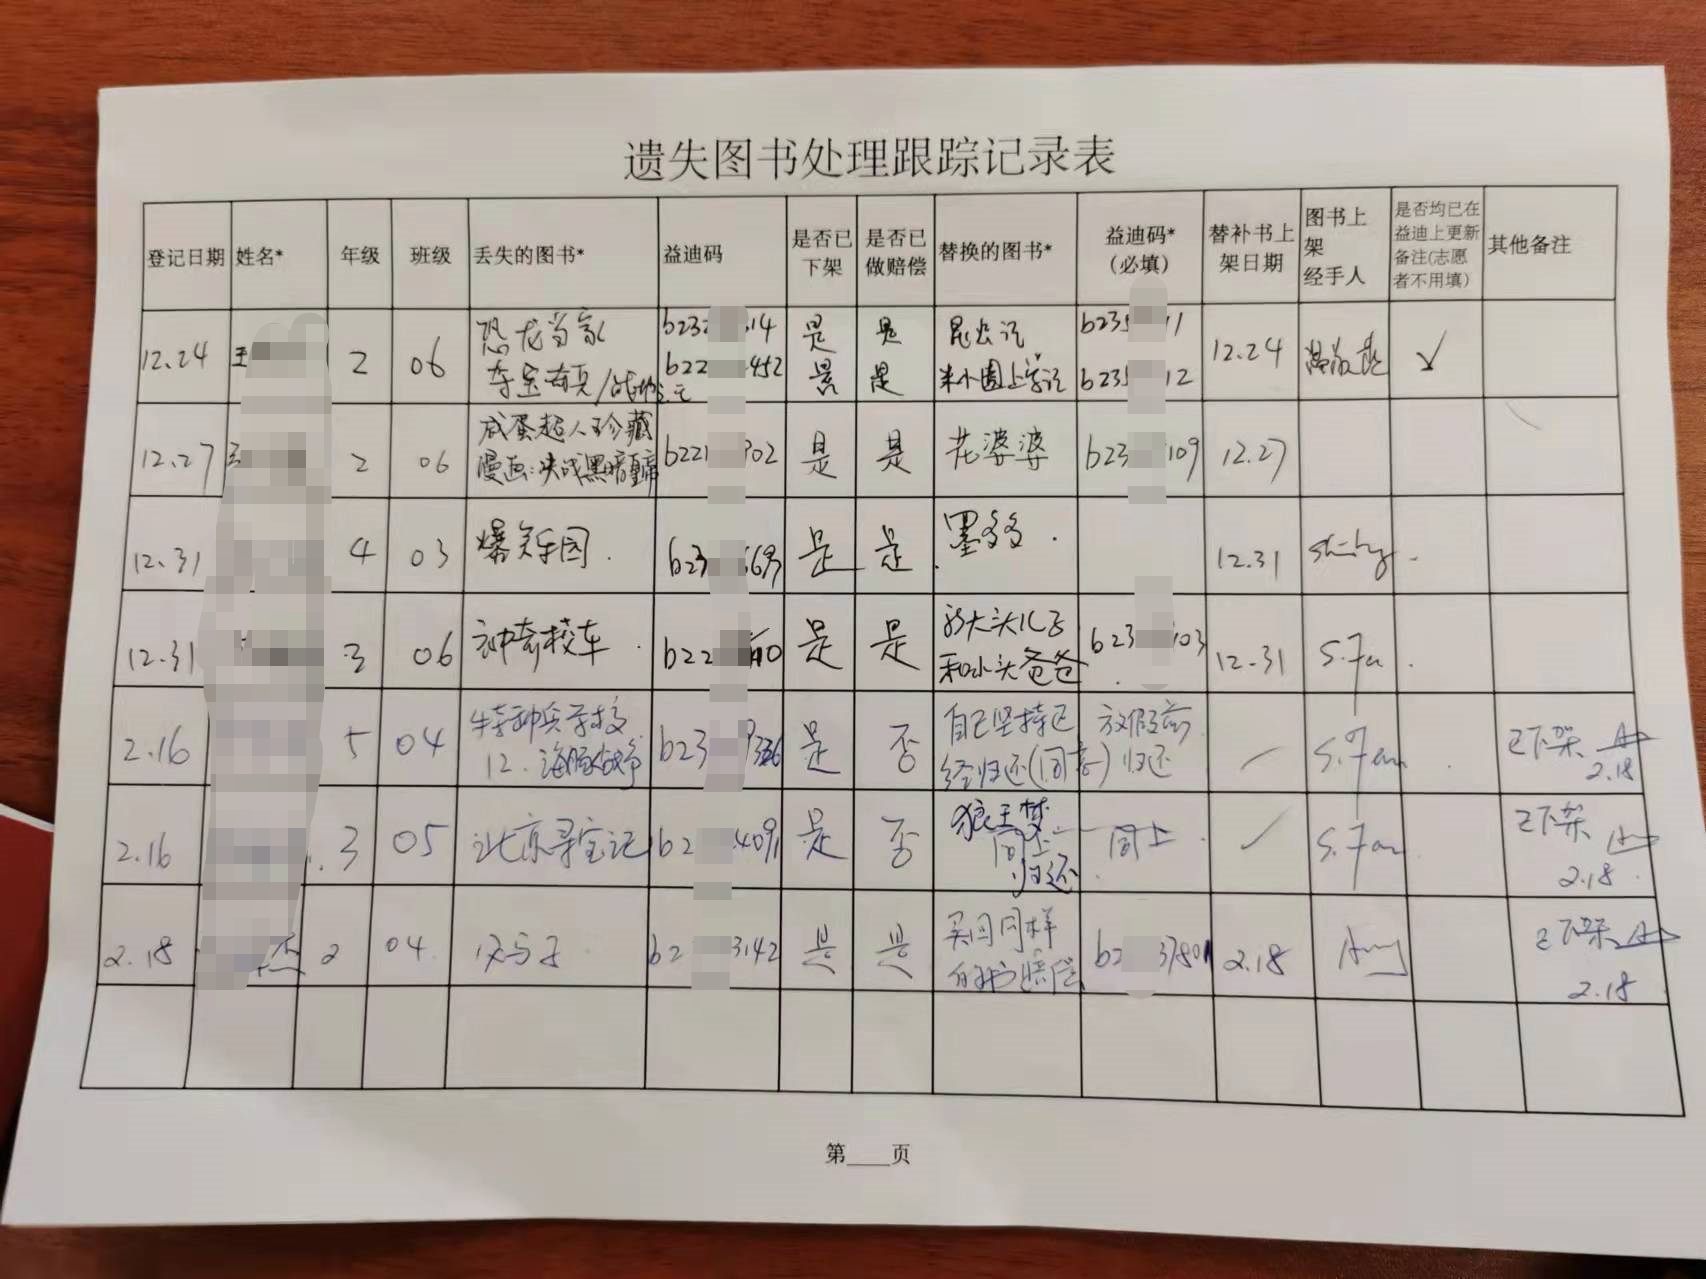 遗失图书处理跟踪记录表
登记日期 姓名* 年级 班级 丢失的图书* 益迪码 是否已下架 是否已做赔偿 替换的图书* 益迪码*（必填） 替补书上架日期 图书上架经手人 是否均已在益迪上更新备注(志愿者不用填) 其他备注
12.24 王 2 06 恐龙当家 b232 14 是 是 昆虫记 b235 11 12.24 ✓
b22 452 是 是 米小圈上学记 b235 12
12.27 王 2 06 咸蛋超人珍藏 b221 902 是 是 花婆婆 b23 109 12.27
漫画:决战黑暗
12.31 4 03 爆笑乐园. b23 669 是 是 墨多多. 12.31
12.31 3 06 神奇校车. b22 是 是 新大头儿子 b23 103 12.31 S.Fan.
和小头爸爸
2.16 5 04 特种兵学校 b23 是 否 自己坚持已 放假前 S.Fan. 已下架
12. 海豚战争 经归还(同意) 归还 2.18
2.16 3 05 北京寻宝记 b2 4091 是 否 狼王梦 同上 S.Fan 已下架
同上
归还 2.18.
2.18 2 04. 父与子 b22 3142 是 是 买回同样 b2 37801 2.18 Amy 已下架
的书赔偿 2.18
第____页